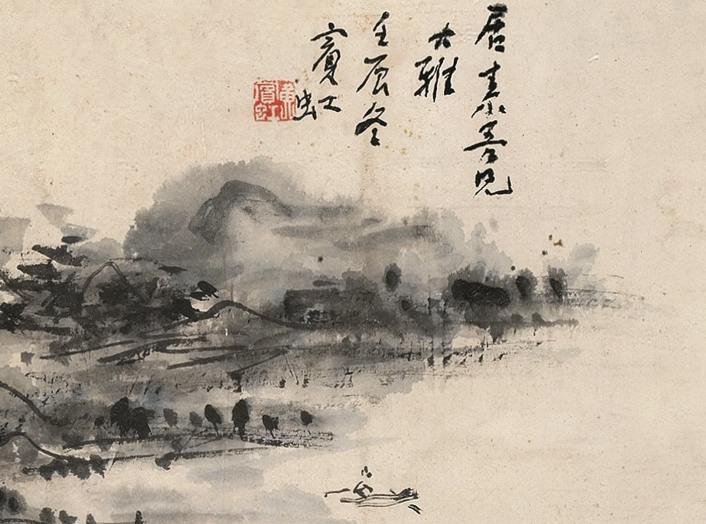 居素吾兄
大雅
壬辰冬
賓虹
黃賓虹